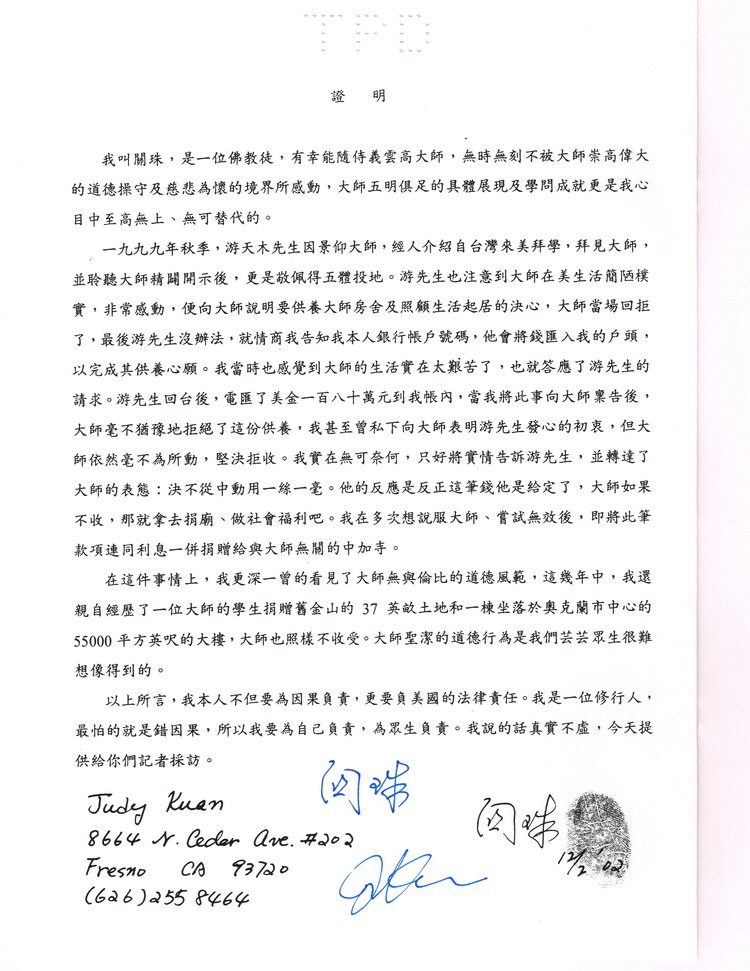 TFD
證 明
我叫關珠，是一位佛教徒，有幸能隨侍義雲高大師，無時無刻不被大師崇高偉大
的道德操守及慈悲為懷的境界所感動，大師五明俱足的具體展現及學問成就更是我心
目中至高無上、無可替代的。
一九九九年秋季，游天木先生因景仰大師，經人介紹自台灣來美拜學，拜見大師，
並聆聽大師精闢開示後，更是敬佩得五體投地。游先生也注意到大師在美生活簡陋樸
實，非常感動，便向大師說明要供養大師房舍及照顧生活起居的決心，大師當場回拒
了，最後游先生沒辦法，就情商我告知我本人銀行帳戶號碼，他會將錢匯入我的戶頭，
以完成其供養心願。我當時也感覺到大師的生活實在太艱苦了，也就答應了游先生的
請求。游先生回台後，電匯了美金一百八十萬元到我帳內，當我將此事向大師稟告後，
大師毫不猶豫地拒絕了這份供養，我甚至曾私下向大師表明游先生發心的初衷，但大
師依然毫不為所動，堅決拒收。我實在無可奈何，只好將實情告訴游先生，並轉達了
大師的表態：決不從中動用一絲一毫。他的反應是反正這筆錢他是給定了，大師如果
不收，那就拿去捐廟、做社會福利吧。我在多次想說服大師、嘗試無效後，即將此筆
款項連同利息一併捐贈給與大師無關的中加寺。
在這件事情上，我更深一曾的看見了大師無與倫比的道德風範，這幾年中，我還
親自經歷了一位大師的學生捐贈舊金山的 37 英畝土地和一棟坐落於奧克蘭市中心的
55000 平方英呎的大樓，大師也照樣不收受。大師聖潔的道德行為是我們芸芸眾生很難
想像得到的。
以上所言，我本人不但要為因果負責，更要負美國的法律責任。我是一位修行人，
最怕的就是錯因果，所以我要為自己負責，為眾生負責。我說的話真實不虛，今天提
供給你們記者採訪。
关珠
Judy Kuan
关珠
8664 N. Cedar Ave. #202
12/2 '02
Fresno CA 93720
(626)255 8464